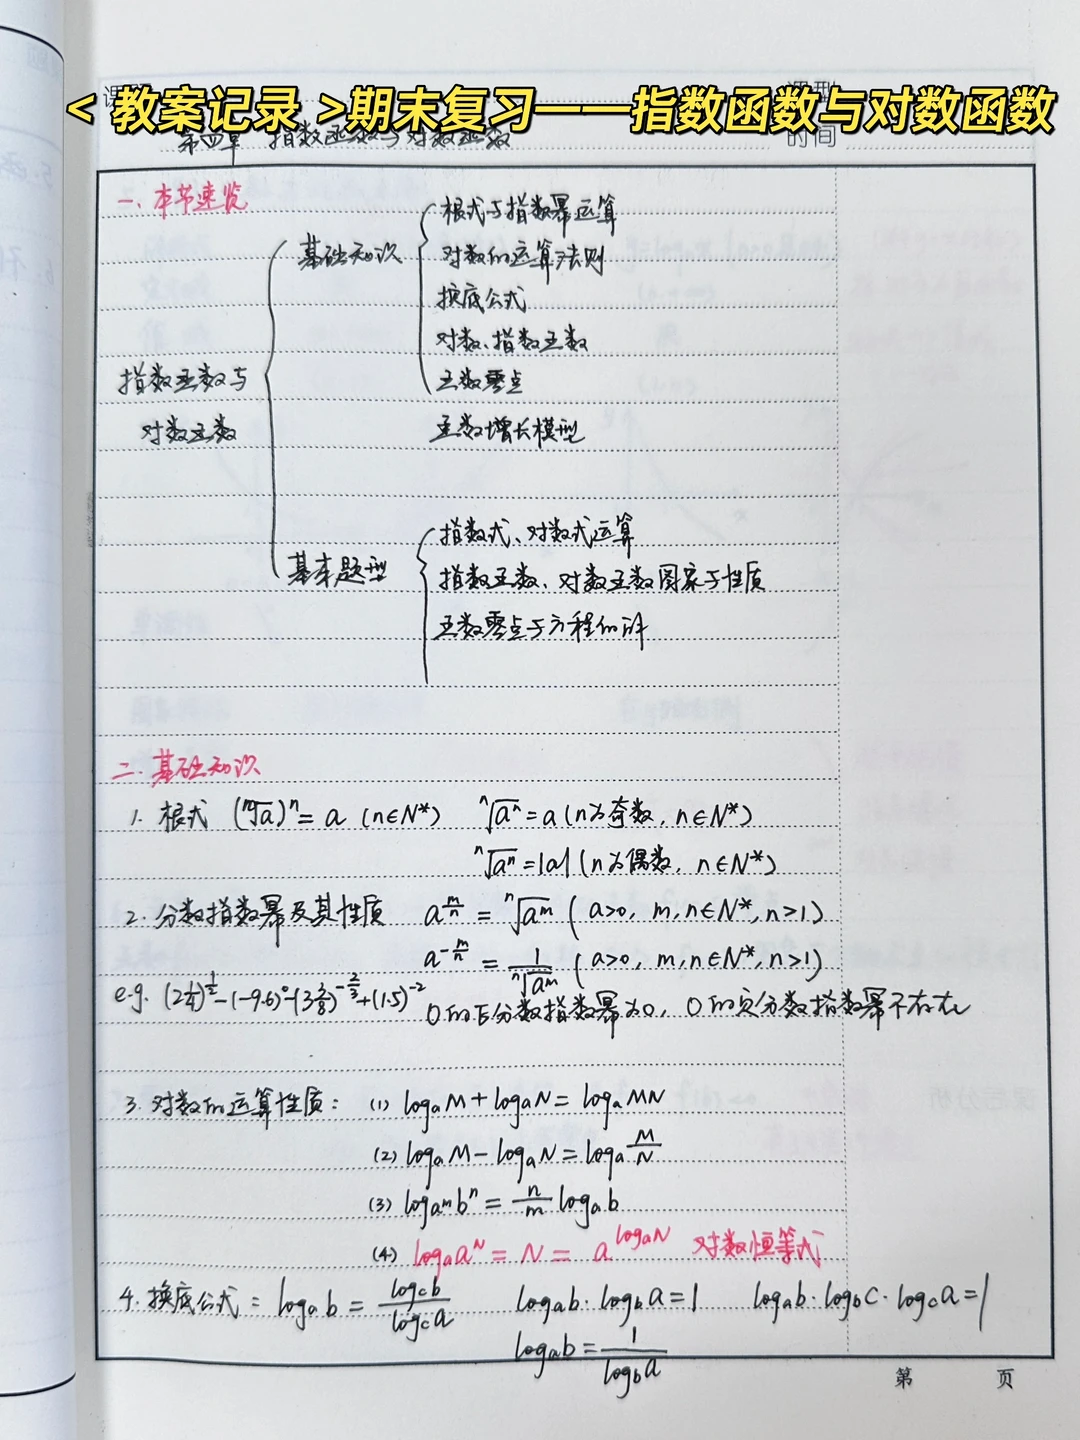 <教案记录>期末复习——指数函数与对数函数
时间
第四章 指数函数与对数函数
一、本节速览
指数函数与
对数函数
基础知识
根式与指数幂运算
对数的运算法则
换底公式
对数、指数函数
函数零点
函数增长模型
基本题型
指数式、对数式运算
指数函数、对数函数图象与性质
函数零点与方程的解
二、基础知识
1. 根式 (ⁿ√a)ⁿ = a (n∈N*) ⁿ√aⁿ = a (n为奇数, n∈N*)
ⁿ√aⁿ = |a| (n为偶数, n∈N*)
2. 分数指数幂及其性质 a^(m/n) = ⁿ√a^m (a>0, m,n∈N*, n>1)
a^(-m/n) = 1/ⁿ√a^m (a>0, m,n∈N*, n>1)
e.g. (2 1/4)^(1/2) - (-9.6)^0 - (3 3/8)^(-2/3) + (1.5)^(-2)
0的正分数指数幂为0, 0的负分数指数幂不存在
3. 对数的运算性质: (1) logₐM + logₐN = logₐMN
(2) logₐM - logₐN = logₐ M/N
(3) log_(a^m) b^n = n/m logₐb
(4) logₐa^N = N = a^(logₐN) 对数恒等式
4. 换底公式: logₐb = log_c b / log_c a logₐb · log_b a = 1 logₐb · log_b c · log_c a = 1
logₐb = 1/log_b a
第 页